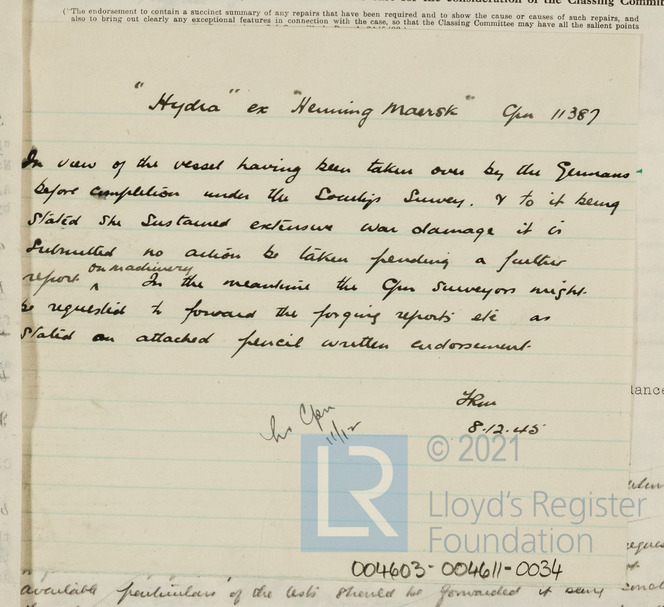 for the consideration of the Classing Committ
("The endorsement to contain a succinct summary of any repairs that have been required and to show the cause or causes of such repairs, and
also to bring out clearly any exceptional features in connection with the case, so that the Classing Committee may have all the salient points
"Hydra" ex "Henning Maersk" Cpn 11387
In view of the vessel having been taken over by the Germans
before completion under the Society's Survey, & to it being
stated she sustained extensive war damage it is
submitted no action be taken pending a further
report ^ on machinery In the meantime the Cpn Surveyors might
be requested to forward the forging reports etc as
stated on attached pencil written endorsement.
8.12.45
Cpn
11/12
lance
© 2021
LR
Lloyd's Register
Foundation
004603-004611-0034
available particulars of the tests should be forwarded if